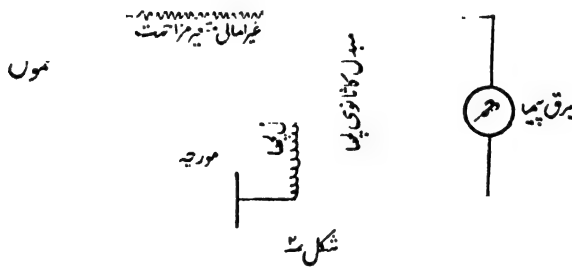 غیر امالی متغیر مزاحمت
موں
مبدل کا ثانوی لچھا
برق پیما
لچھا
مورچہ
شکل ۲